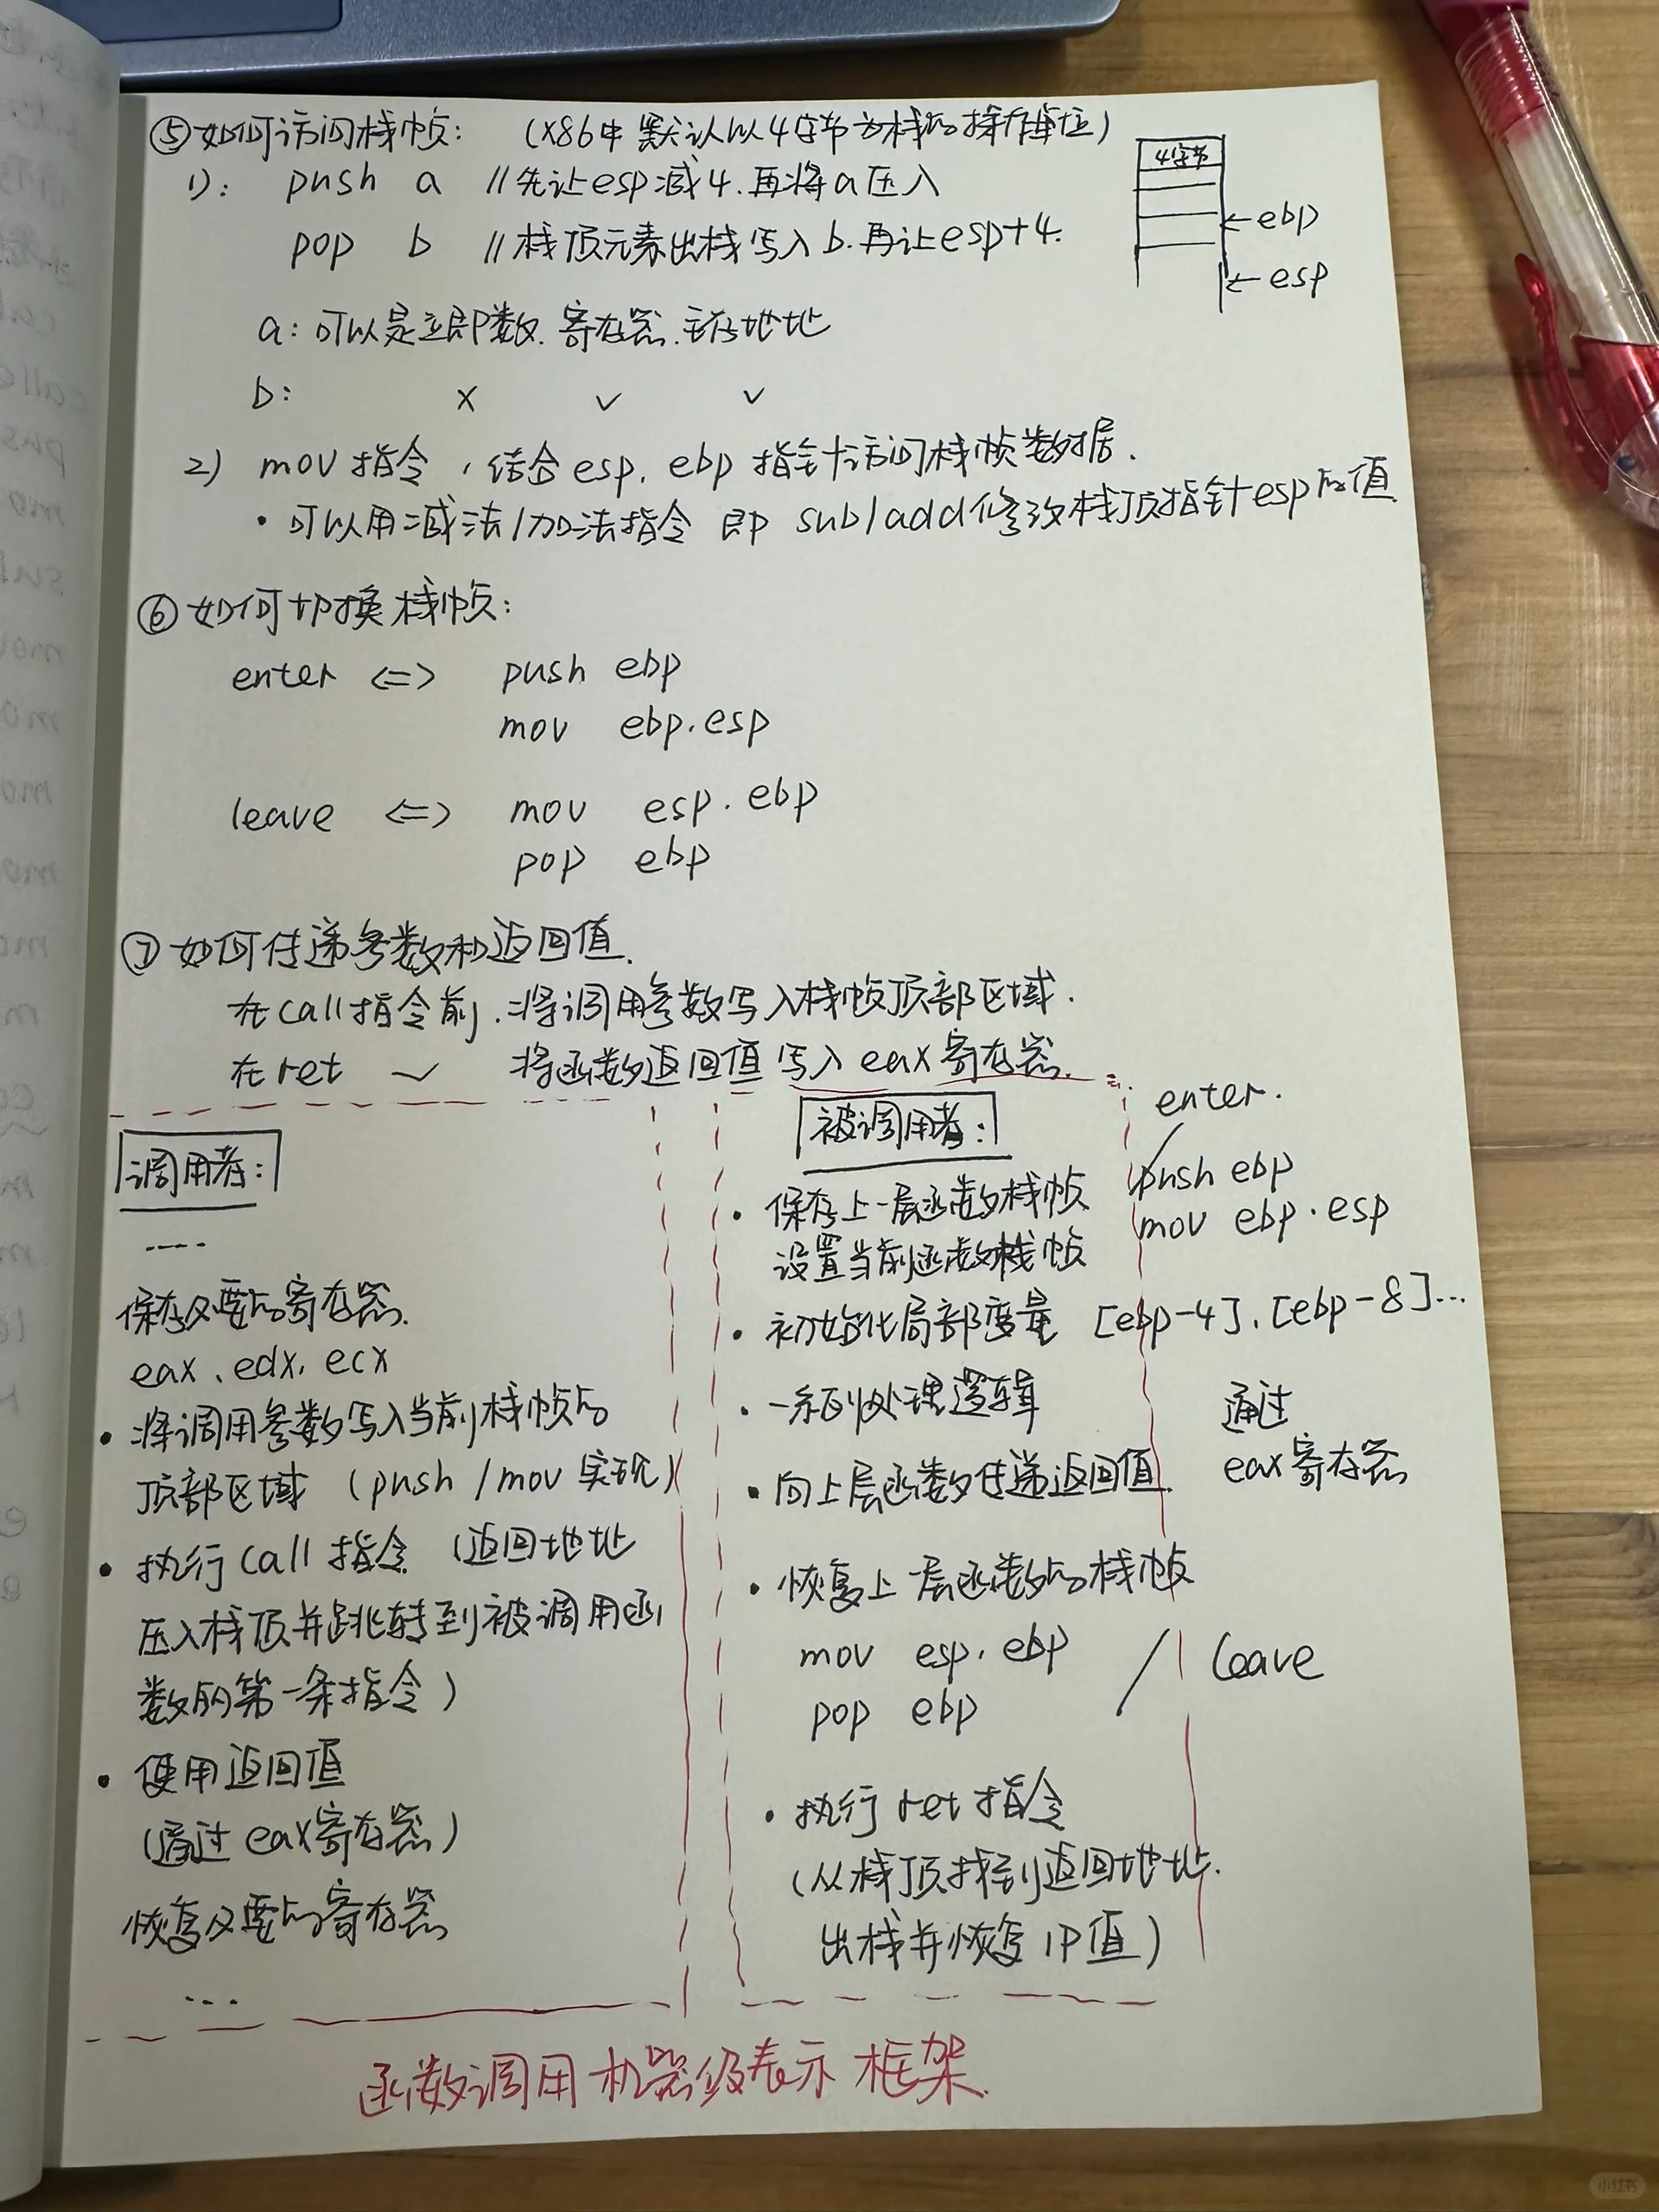 ⑤如何访问栈帧：（x86中默认以4字节为栈的操作单位）
4字节
←ebp
←esp
1)： push a //先让esp减4.再将a压入
pop b //栈顶元素出栈写入b.再让esp+4.
a：可以是立即数.寄存器.主存地址
b： × ✓ ✓
2) mov指令，结合esp，ebp指针访问栈帧数据.
·可以用减法/加法指令 即 sub/add修改栈顶指针esp的值
⑥如何切换栈帧：
enter <=> push ebp
mov ebp.esp
leave <=> mov esp.ebp
pop ebp
⑦如何传递参数和返回值.
在call指令前.将调用参数写入栈帧顶部区域.
在ret ✓ 将函数返回值写入eax寄存器.
调用者：
....
保存必要的寄存器.
eax、edx，ecx
·将调用参数写入当前栈帧的
顶部区域（push/mov实现）
·执行call指令（返回地址
压入栈顶并跳转到被调用函
数的第一条指令）
·使用返回值
（通过eax寄存器）
恢复必要的寄存器
...
被调用者：
·保存上一层函数栈帧
设置当前函数栈帧
enter.
push ebp
mov ebp.esp
·初始化局部变量 [ebp-4]、[ebp-8]...
·一系列处理逻辑
·向上层函数传递返回值
通过
eax寄存器
·恢复上一层函数的栈帧
mov esp，ebp
pop ebp
/ leave
·执行ret指令
（从栈顶找到返回地址.
出栈并恢复IP值）
函数调用机器级表示框架.
小红书